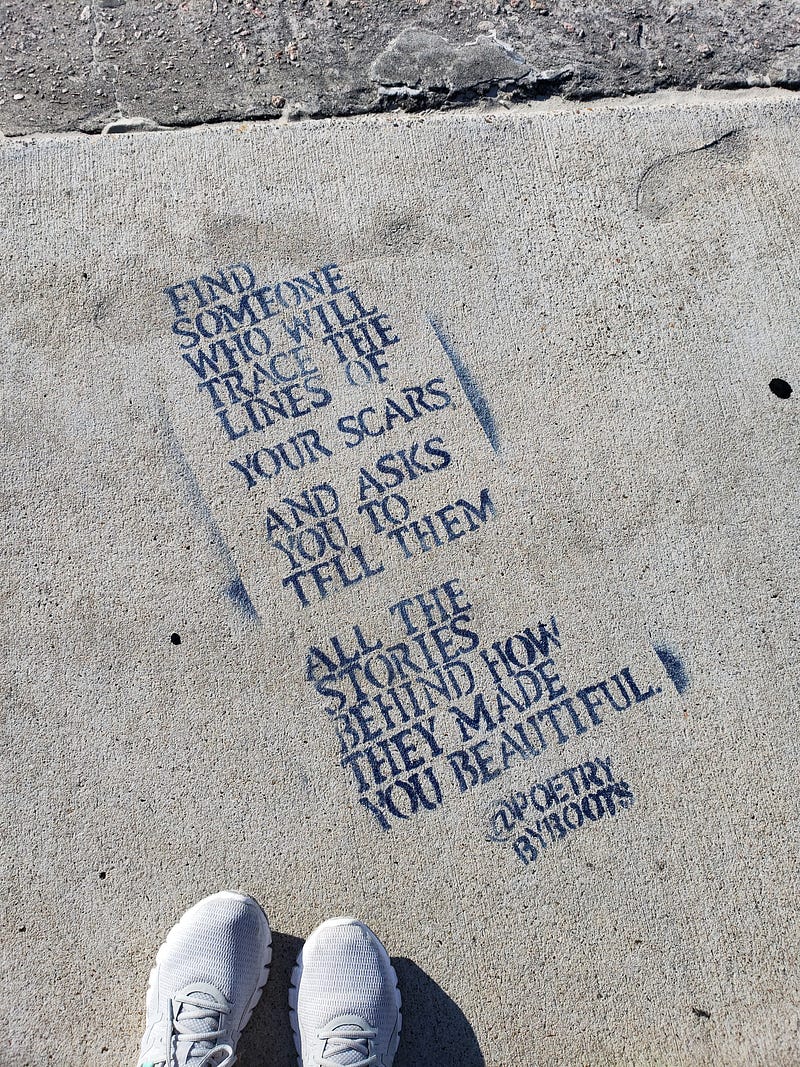 FIND
SOMEONE
WHO WILL
TRACE THE
LINES OF
YOUR SCARS
AND ASKS
YOU TO
TELL THEM
ALL THE
STORIES
BEHIND HOW
THEY MADE
YOU BEAUTIFUL.
@POETRY
BYBOOTS